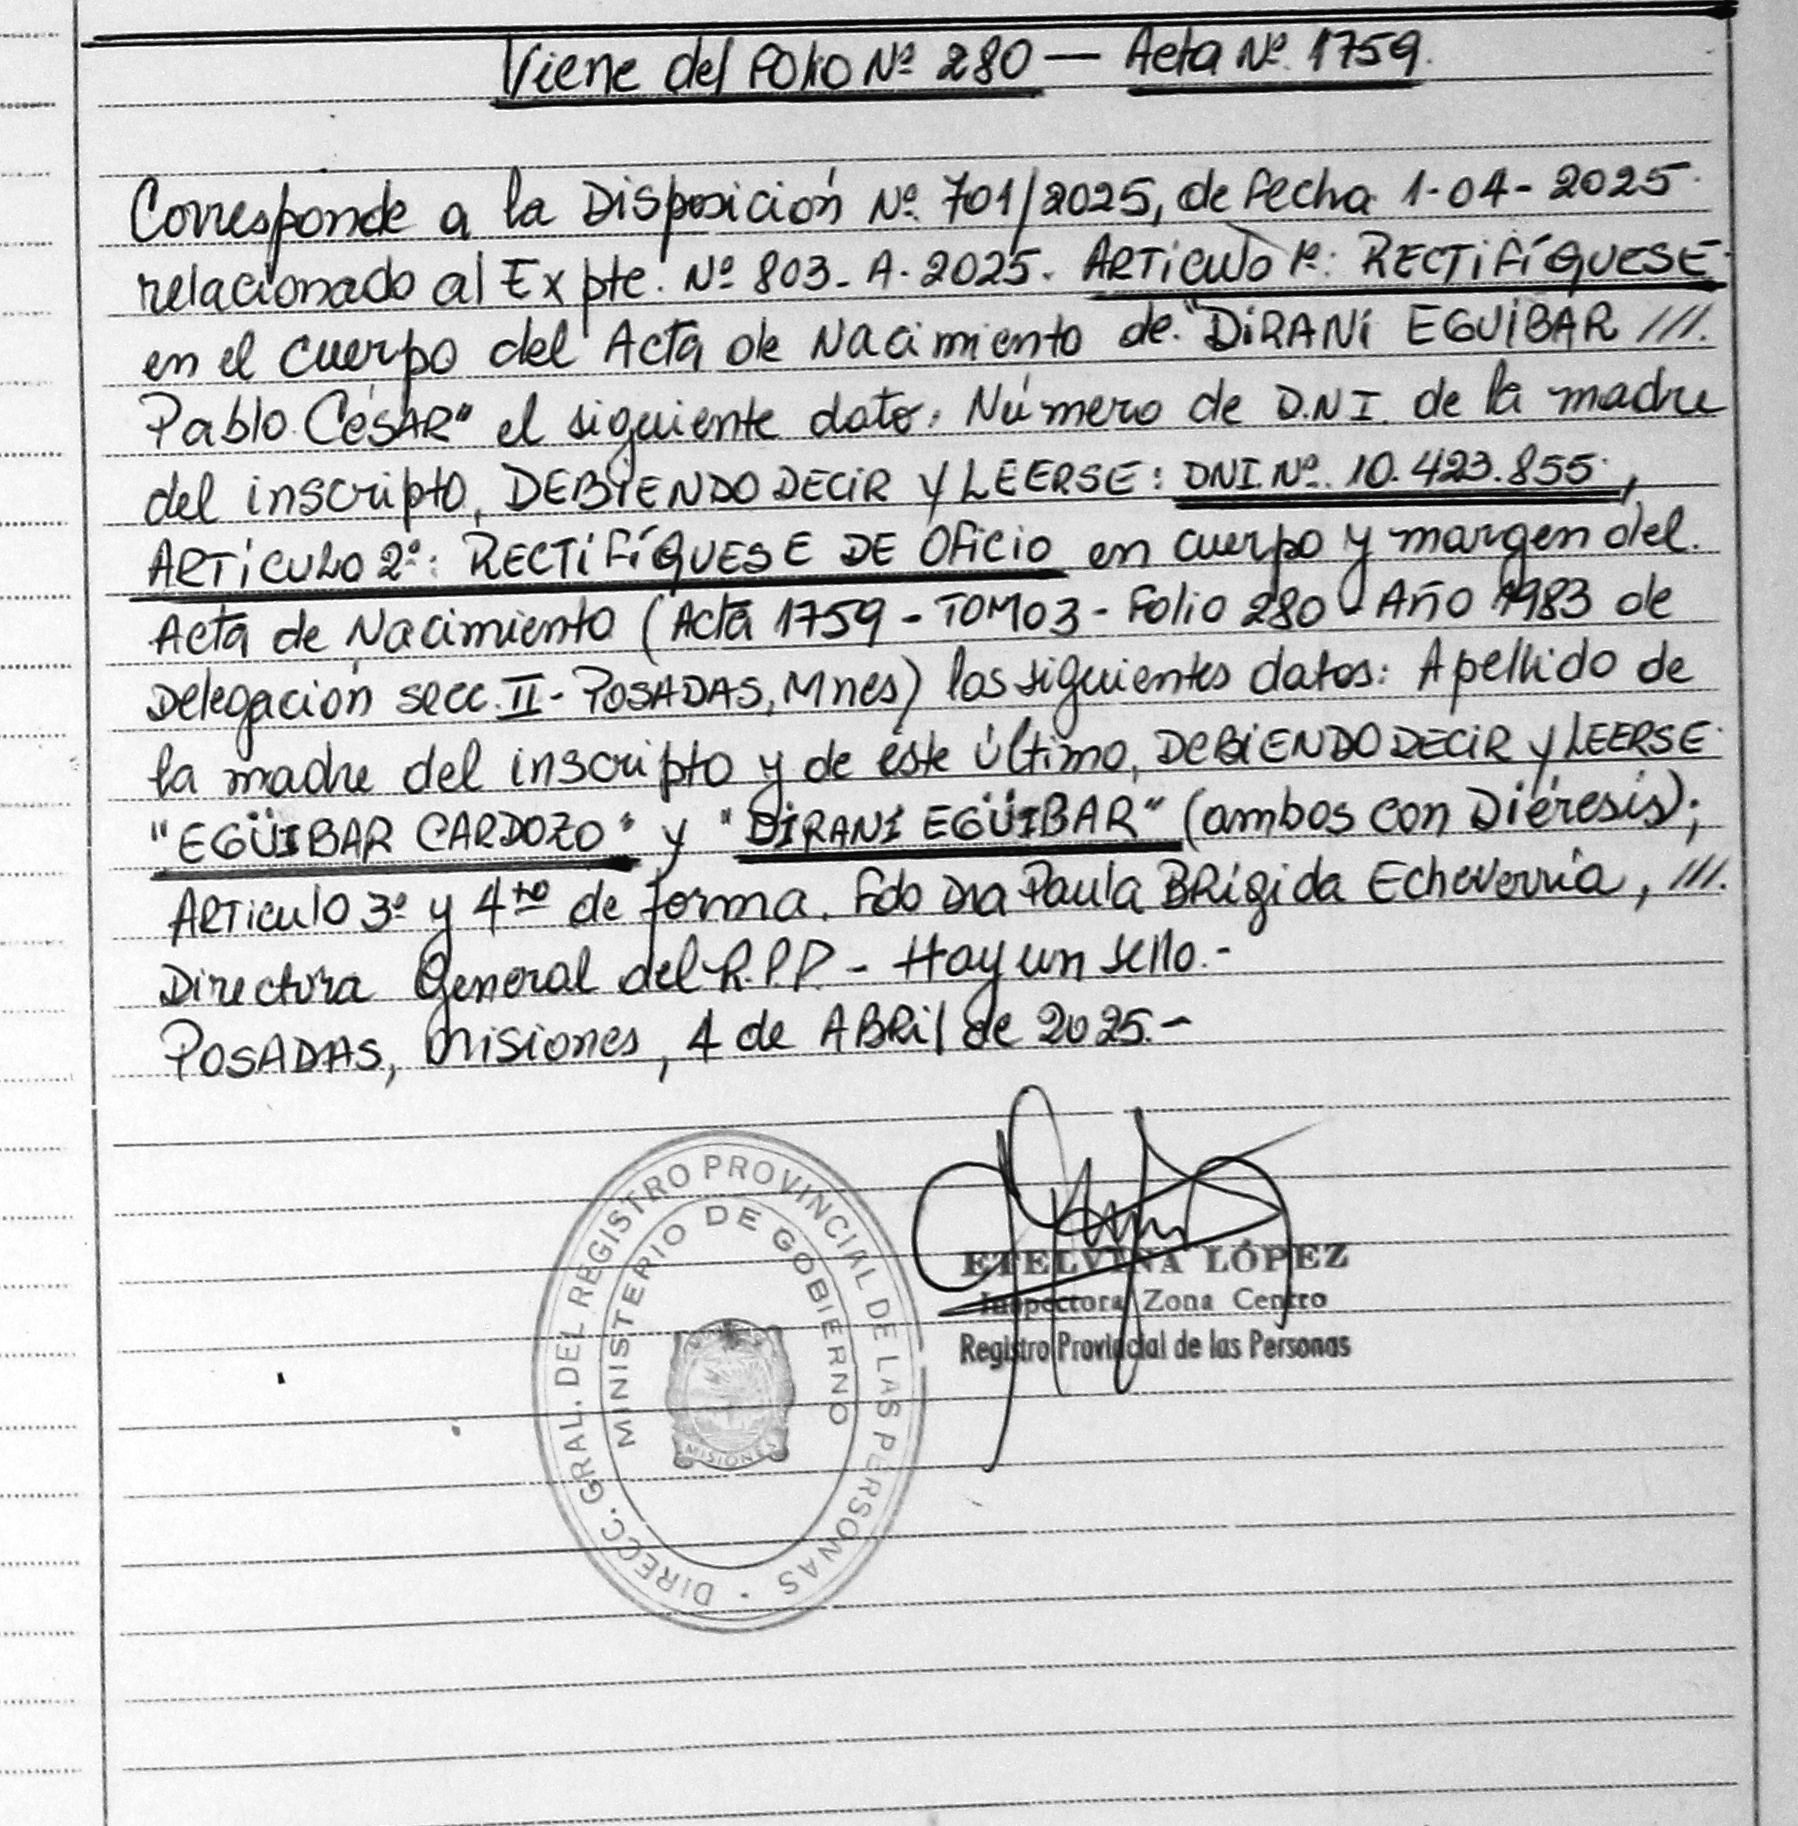 Viene del FOLIO Nº 280 — Acta Nº 1759.
Corresponde a la Disposición Nº 701/2025, de fecha 1-04-2025.
relacionado al Expte. Nº 803-A-2025. ARTICULO 1º: RECTIFÍQUESE
en el cuerpo del Acta de Nacimiento de "DIRANI EGUIBAR ///.
Pablo CÉSAR" el siguiente dato: Número de D.N.I. de la madre
del inscripto, DEBIENDO DECIR Y LEERSE: DNI Nº. 10.423.855,
ARTÍCULO 2º: RECTIFÍQUESE DE OFICIO en cuerpo y margen del
Acta de Nacimiento (Acta 1759 - TOMO 3 - Folio 280 - Año 1983 de
Delegación secc. II - POSADAS, Mnes) los siguientes datos: Apellido de
la madre del inscripto y de éste último, DEBIENDO DECIR y LEERSE
"EGÜIBAR CARDOZO" y "DIRANI EGÜIBAR" (ambos con Diéresis);
ARTICULO 3º y 4to de forma. Fdo Dra Paula BRígida Echeverría, ///.
Directora General del R.P.P. - Hay un sello.-
POSADAS, Misiones, 4 de ABRil de 2025.-
DIRECC. GRAL. DEL REGISTRO PROVINCIAL DE LAS PERSONAS
MINISTERIO DE GOBIERNO
MISIONES
ETELVINA LÓPEZ
Inspectora Zona Centro
Registro Provincial de las Personas